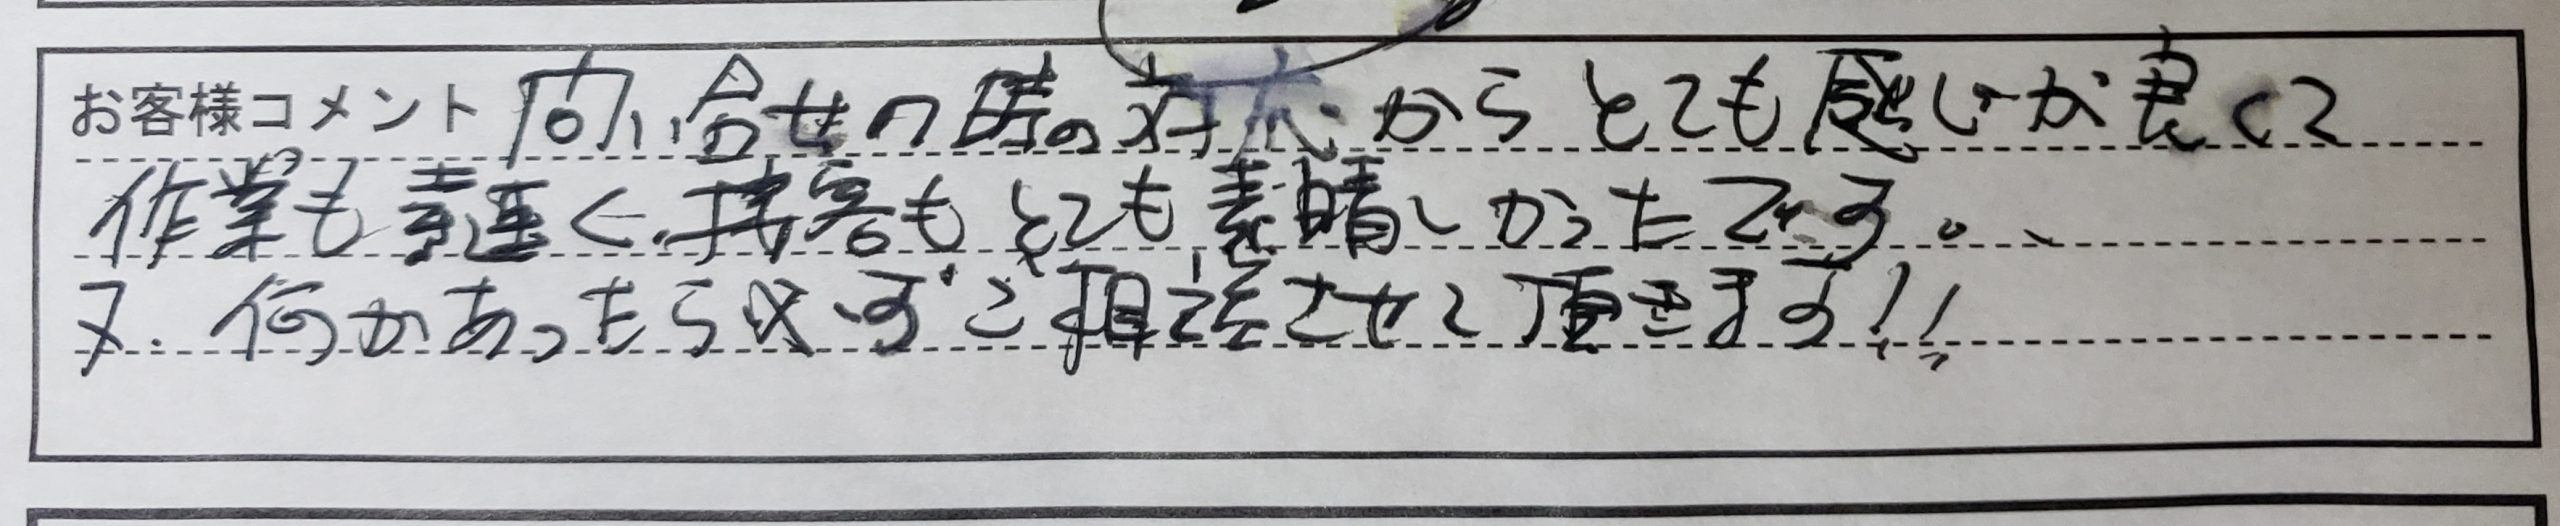 お客様コメント 問い合せの時の対応からとても感じが良くて
作業も素速く、接客もとても素晴しかったです。
又、何かあったら必ずご相談させて頂きます!!